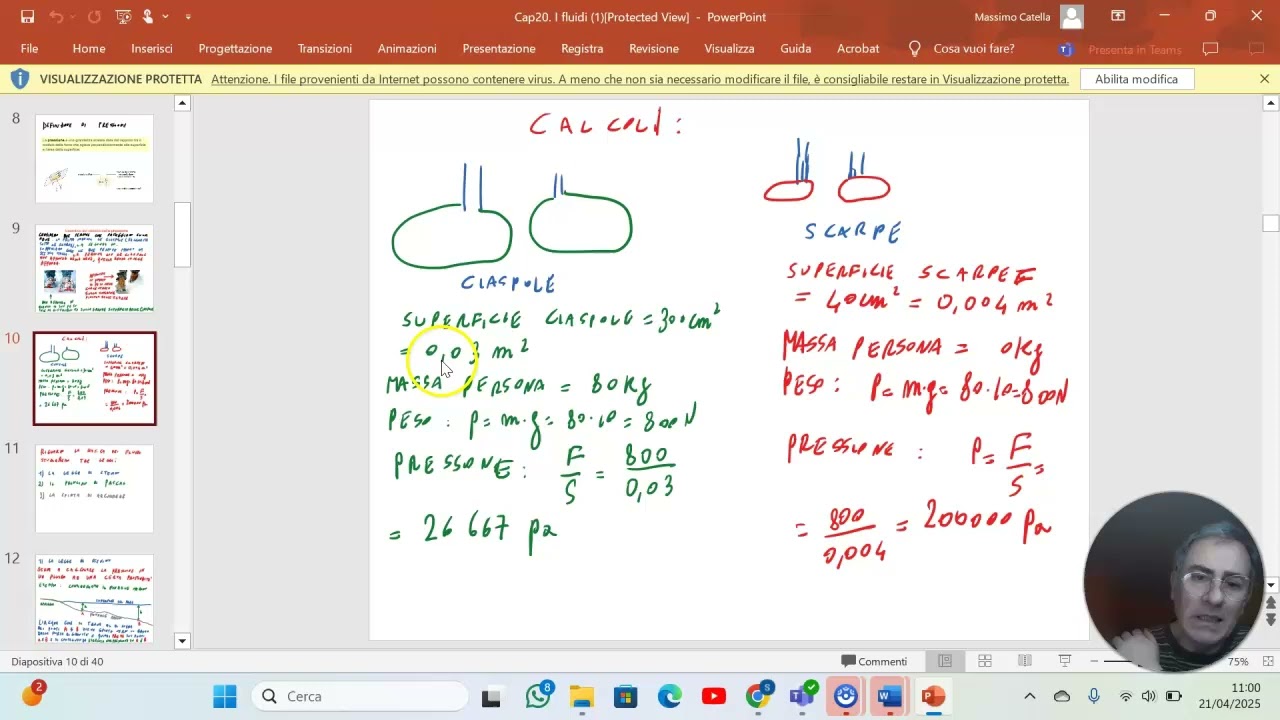 Cap20. I fluidi (1)[Protected View] - PowerPoint
Massimo Catella
File Home Inserisci Progettazione Transizioni Animazioni Presentazione Registra Revisione Visualizza Guida Acrobat Cosa vuoi fare? Presenta in Teams
VISUALIZZAZIONE PROTETTA Attenzione. I file provenienti da Internet possono contenere virus. A meno che non sia necessario modificare il file, è consigliabile restare in Visualizzazione protetta. Abilita modifica
8
DEFINIZIONE DI PRESSIONE
9
10
11
1) LA LEGGE DI STEVINO
2) IL PRINCIPIO DI PASCAL
3) LA SPINTA DI ARCHIMEDE
12
1) LA LEGGE DI STEVINO
CALCOLI:
CIASPOLE
SUPERFICIE CIASPOLE = 300cm²
= 0,03 m²
MASSA PERSONA = 80Kg
PESO : P= m·g= 80·10 = 800N
PRESSIONE : F/S = 800/0,03
= 26 667 pa
SCARPE
SUPERFICIE SCARPE
= 40cm² = 0,004 m²
MASSA PERSONA = 0Kg
PESO : P= m·g= 80·10=800N
PRESSIONE : P= F/S =
= 800/0,004 = 200000 Pa
Diapositiva 10 di 40
Commenti
75%
2
Cerca
8
11:00
21/04/2025